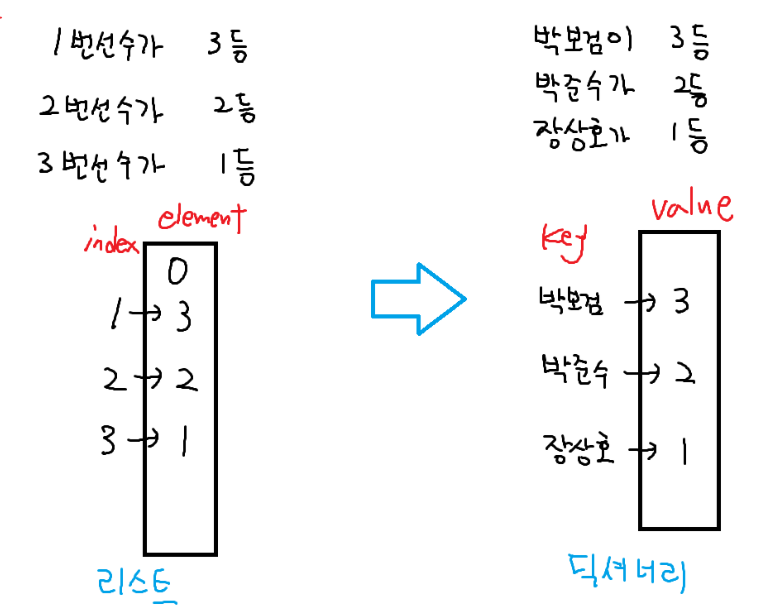 1번선수가 3등
2번선수가 2등
3번선수가 1등
index element
0
1 → 3
2 → 2
3 → 1
리스트
박보검이 3등
박준수가 2등
장상호가 1등
key value
박보검 → 3
박준수 → 2
장상호 → 1
딕셔너리